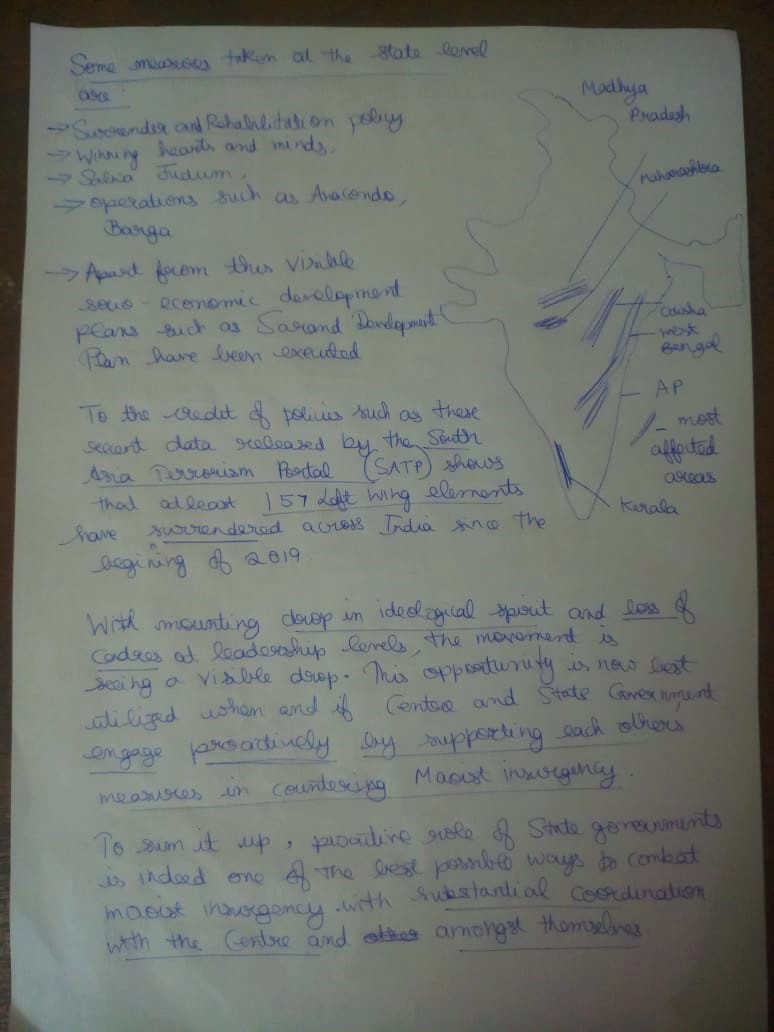 Some measures taken at the state level
are:
→ Surrender and Rehabilitation policy
→ Winning hearts and minds,
→ Salwa Judum,
→ operations such as Anaconda,
Barga
→ Apart from this visible
socio-economic development
plans such as Sarand Development
Plan have been executed
Madhya
Pradesh
Maharashtra
Odisha
West
Bengal
AP
- most
affected
areas
Kerala
To the credit of policies such as these
recent data released by the South
Asia Terrorism Portal (SATP) shows
that atleast 157 Left wing elements
have surrendered across India since the
begining of 2019.
With mounting drop in ideological spirit and loss of
cadres at leadership levels, the movement is
seeing a visible drop. This opportunity is now best
utilized when and if Centre and State Government
engage proactively by supporting each others
measures in countering Maoist insurgency.
To sum it up, proactive role of State governments
is indeed one of the best possible ways to combat
maoist insurgency with substantial coordination
with the Centre and other amongst themselves.